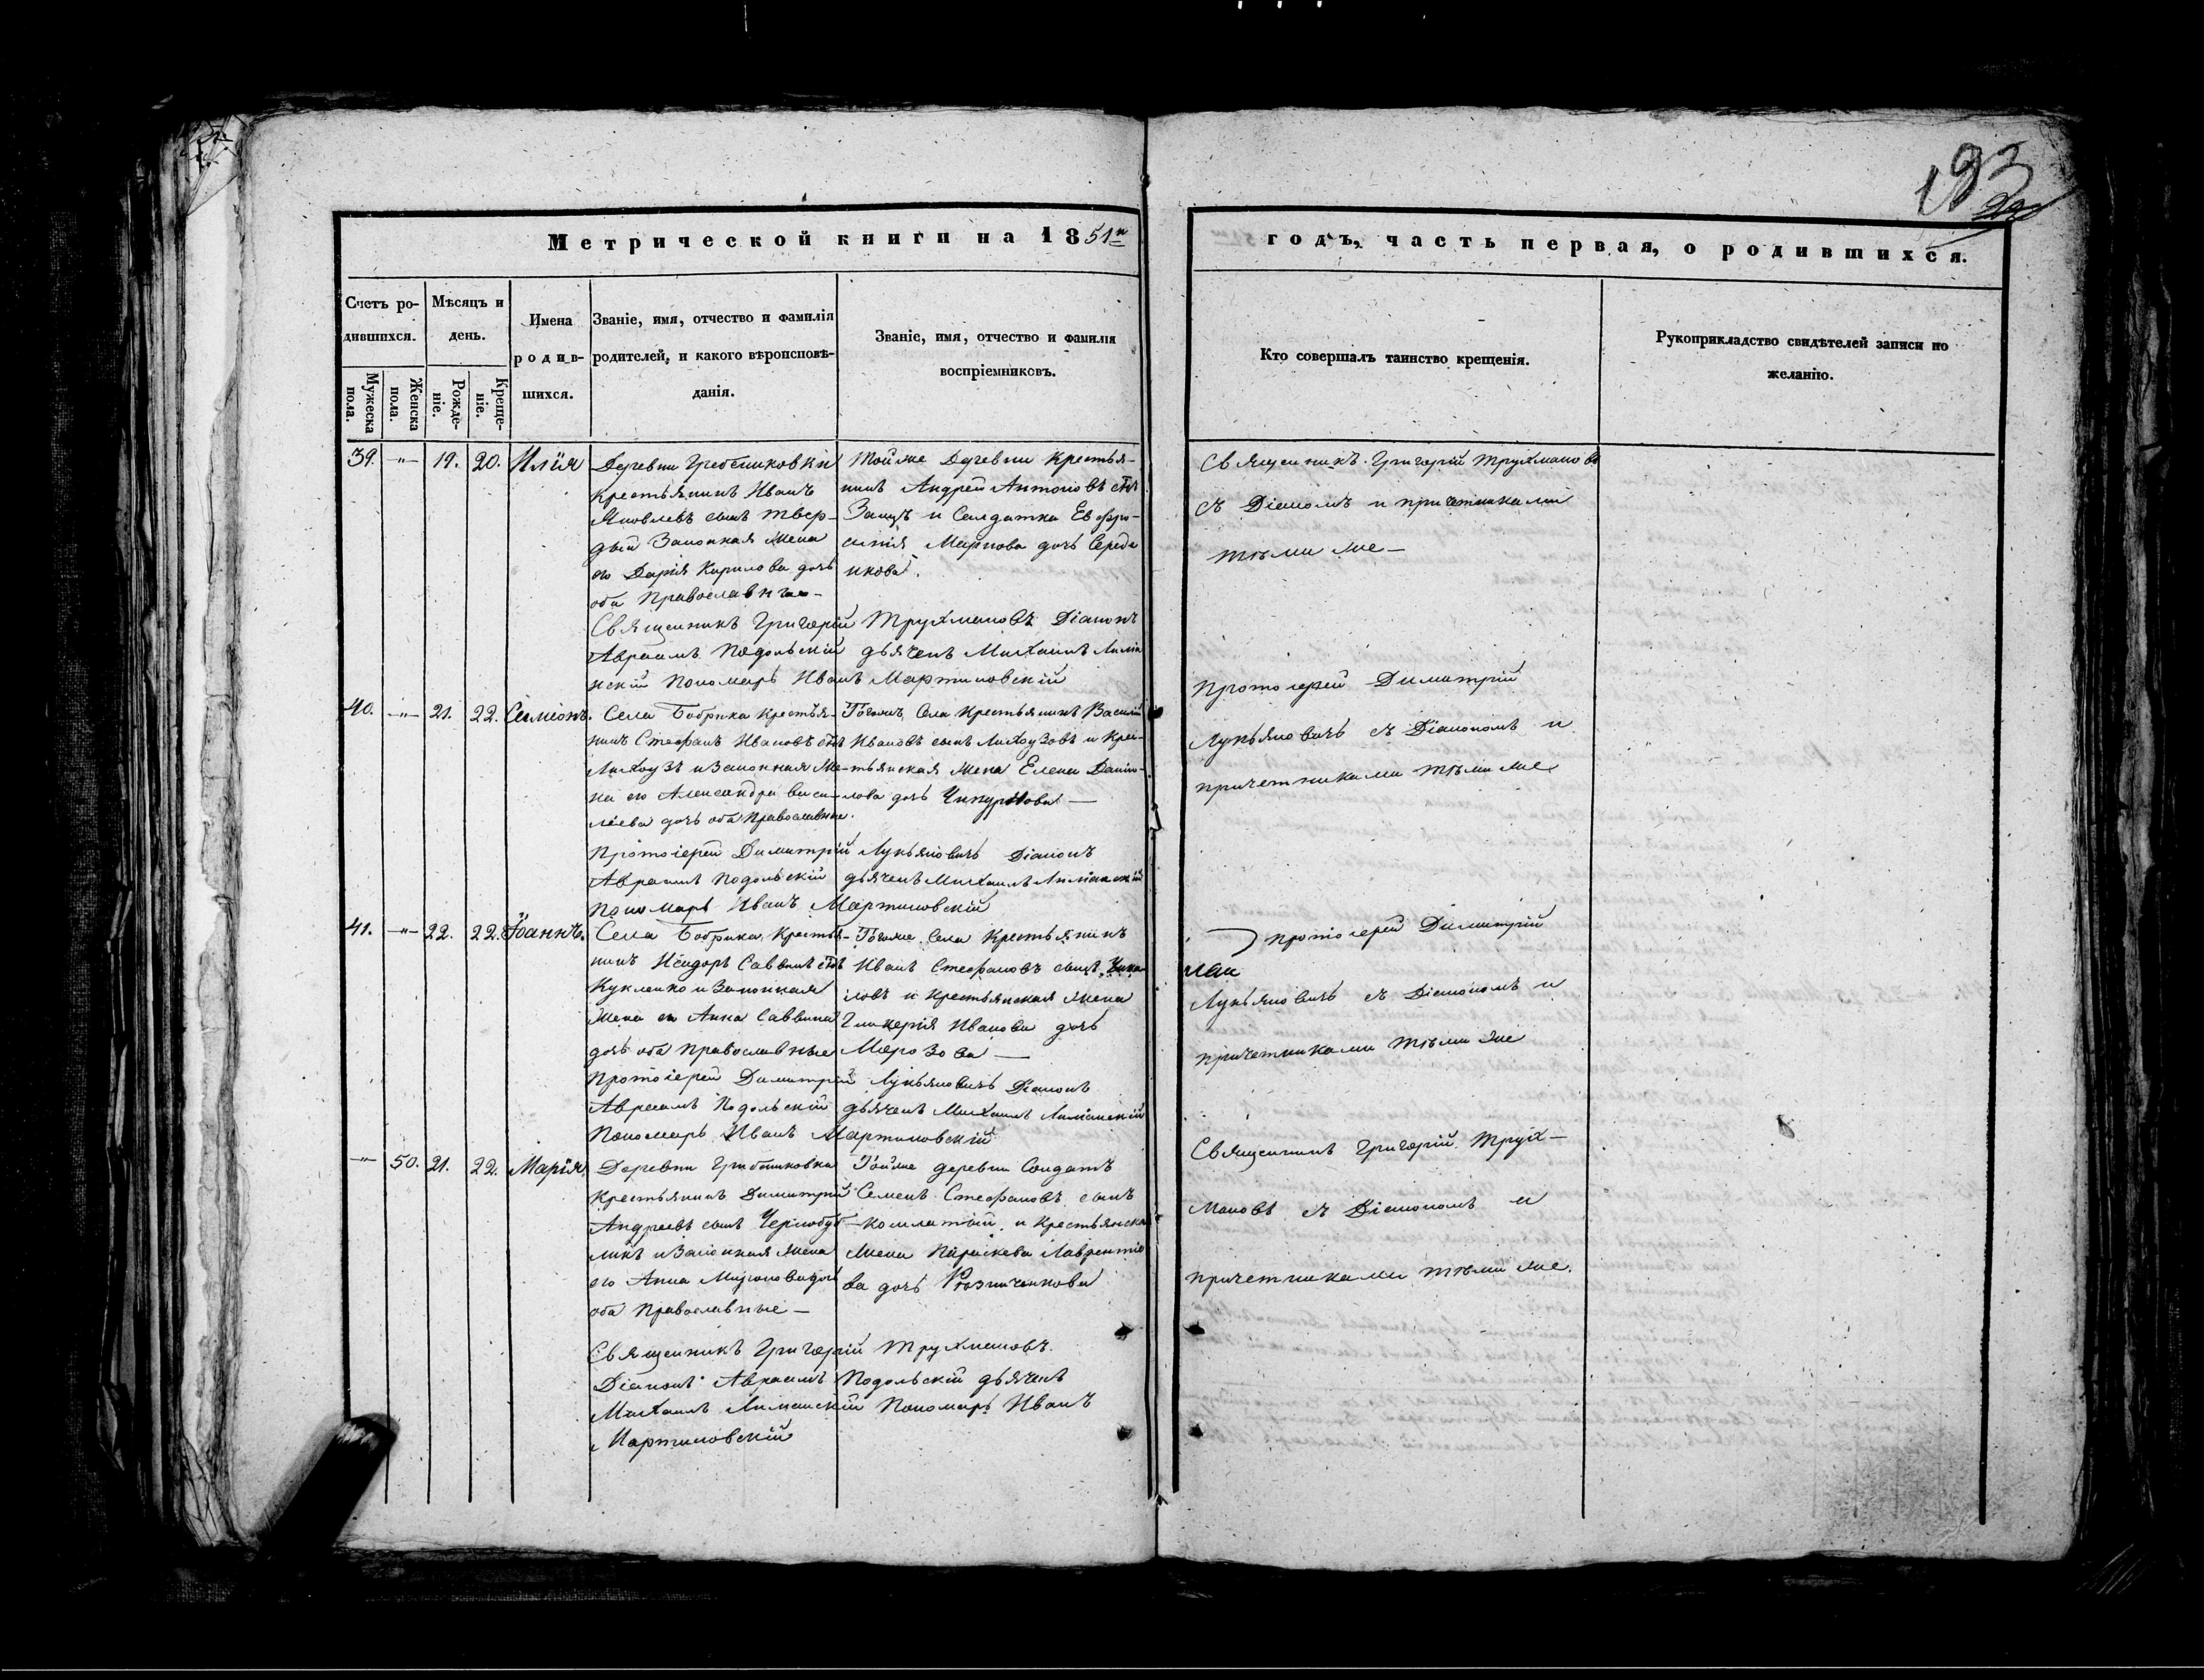 193
Метрической книги на 1851й
годъ, часть первая, о родившихся.
Счетъ родившихся.
Мужеска пола.
Женска пола.
Мѣсяцъ и день.
Рожденіе.
Крещеніе.
Имена родившихся.
Званіе, имя, отчество и фамилія родителей, и какого вѣроисповѣданія.
Званіе, имя, отчество и фамилія воспріемниковъ.
Кто совершалъ таинство крещенія.
Рукоприкладство свидѣтелей записи по желанію.
39. -"- 19. 20. Илія
Деревни Гребениковки
крестьянинъ Иванъ
Яковлевъ сынъ Твер-
дый Законная Жена
его Дарія Кирилова дочь
оба Православные-
Тойже Деревни крестья-
нинъ Андрей Антоновъ снъ
Заецъ и Салдатка Евфро-
синія Маркова дочь Середи
нкова.
Священникъ Григорій Трухмановъ
съ Діакономъ и причетниками
тѣми же-
Священникъ Григорій Трухмановъ Діаконъ
Авраамъ Подольскій дьячекъ Михаилъ Лиман
скій Пономарь Иванъ Мартиновскій
40. -"- 21. 22. Семіонъ.
Села Бобрика Крестья-
нинъ Стефанъ Ивановъ снъ
Лихоузъ и Законная Же-
на его Александра васи-
ліева дочь оба Православные.
Тогожъ Села Крестьянинъ Василій
Ивановъ сынъ Лихоузовъ и Крес-
тьянская Жена Елена Дании-
лова дочь
Протоіерей Димитрій
Лукьяновичь съ Діакономъ и
причетниками тѣми же
Протоіерей Димитрій Лукьяновичь Діаконъ
Авраамъ Подольскій дьячекъ Михаилъ Лиманскій
Пономарь Иванъ Мартиновскій
41. -"- 22. 22. Іоаннъ.
Села Бобрика, Крестья-
нинъ Исидоръ Саввинъ снъ
Кукленко и Законная
Жена его Анна Саввина
дочь оба Православные
Тогоже Села Крестьянинъ
Иванъ Стефановъ сынъ
ловъ и Крестьянская Жена
Гликерія Иванова дочь
Морозова —
Протоіерей Димитрій
Лукьяновичь съ Діакономъ и
причетниками тѣми же
Протоіерей Димитрій Лукьяновичь Діаконъ
Авраамъ Подольскій дьячекъ Михаилъ Лиманскій
Пономарь Иванъ Мартиновскій
-"- 50. 21. 22. Марія
Деревни Гребениковки
Крестьянинъ Димитрій
Андреевъ сынъ Чернобуб-
ликъ и Законная Жена
его Анна Миронова дочь
оба Православные —
Тойже деревни Солдатъ
Семенъ Стефановъ сынъ
Комлатый и Крестьянска
Жена Параскева Лаврентіе
ва дочь Рѣзниченкова
Священникъ Григорій Трух-
мановъ съ Діакономъ и
причетниками тѣми же.
Священникъ Григорій Трухмановъ.
Діаконъ Авраамъ Подольскій дьячекъ
Михаилъ Лиманскій Пономарь Иванъ
Мартиновскій